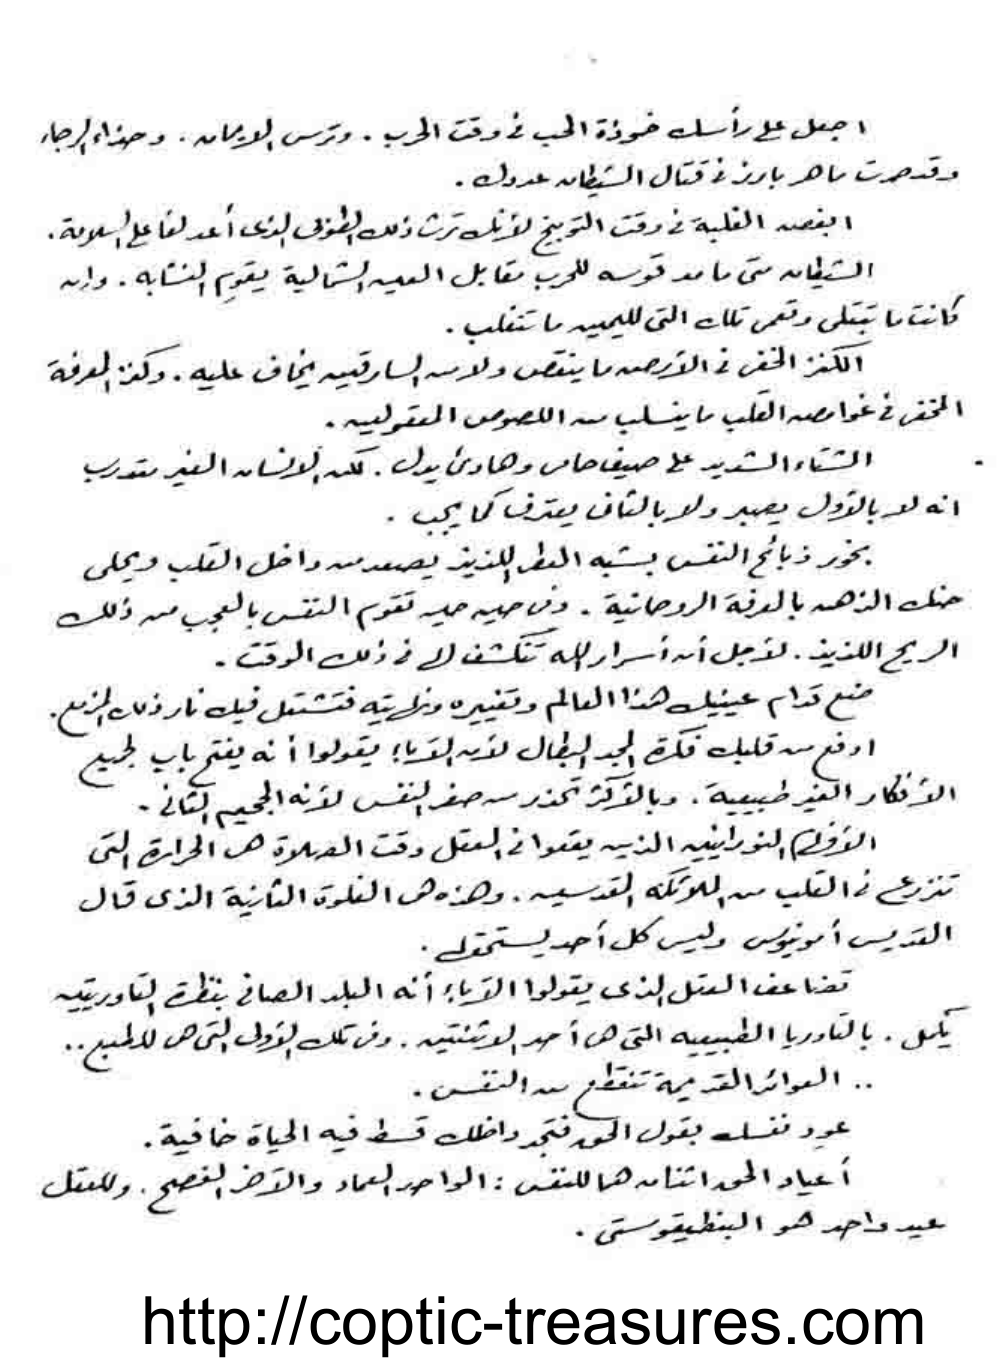 اجعل على رأسك خوذة الحب فى وقت الحرب . وترس الايمان . وحذاء الرجاء
وقد صرت ماهر بارز فى قتال الشيطان عدوك .
ابغض الغلبة فى وقت التوبيخ لأنك ترث ذلك الطوبى الذى أعد لفاعلى السلامة .
الشيطان متى ما مد قوسه للحرب مقابل العين الشمالية يقوم النشابه . وان
كانت ما تبتلى وتعمى تلك التى لليمين ما تنغلب .
الكنز المخفى فى الأرض ما ينقص ولا من السارقين يخاف عليه . وكنز المعرفة
المخفى فى غوامض القلب ما ينسلب من اللصوص المعقولين .
الشتاء الشديد على صيف حامى وهادئ يدل . لكن الانسان الغير متدرب
انه لا بالأول يصبر ولا بالثانى يعترف كما يجب .
بخور ذبائح النفس بشبه العطر اللذيذ يصعد من داخل القلب ويحلى
حنك الذهن بالمعرفة الروحانية . وفى حين حين تقوم النفس بالعجب من ذلك
الريح اللذيذ . لأجل أن أسرار الله تنكشف لى فى ذلك الوقت .
ضع قدام عينيك هذا العالم وتغييره ونهايته فتشتعل فيك نار ذلك المزمع .
ارفع من قلبك فكرة المجد البطال لأن الآباء يقولوا أنه يفتح باب لجميع
الأفكار الغير طبيعية . وبالأكثر تحذر من صغر النفس لأنه الجحيم الثانى .
النورانيين الذين يقعوا فى العقل وقت الصلاة هى الحرارة التى
تنزرع فى القلب من الملائكة القدسيين . وهذه هى الغلوة الثانية الذى قال
القديس أمونيوس وليس كل أحد يستحقها .
تضاعف العقل الذى يقولوا الآباء أنه البلد الصافى بنظرة التاوريتين
يكمل . بالتاوريا الطبيعيه التى هى أحد الاثنتين . وفى تلك الأولى التى هى للطبع ..
.. العوائد القديمة تنقطع من النفس .
عود نفسك بقول الحق فتجد داخلك قسط فيه الحياة خافية .
أعياد الحق اثنان هما للنفس : الواحد العماد والآخر الفصح . وللعقل
عيد واحد هو البنطيقوستى .
http://coptic-treasures.com